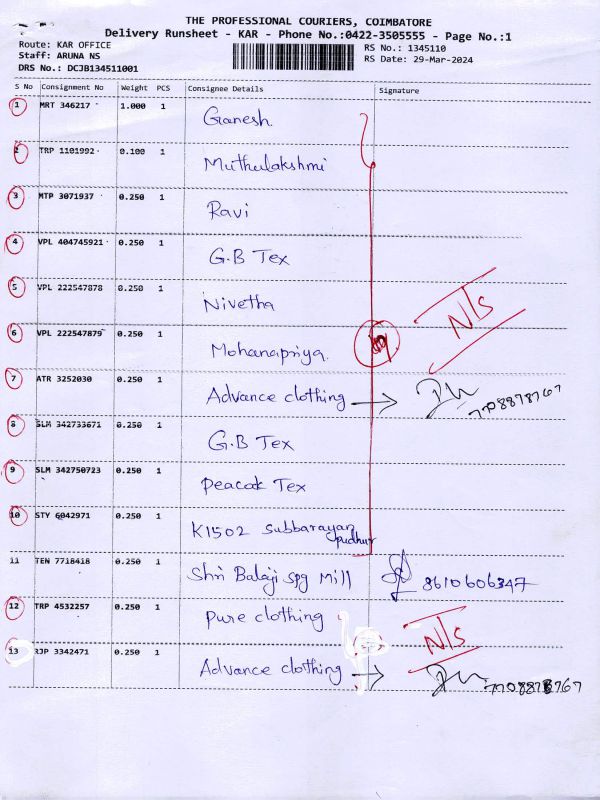 THE PROFESSIONAL COURIERS, COIMBATORE
Delivery Runsheet - KAR - Phone No.:0422-3505555 - Page No.:1
Route: KAR OFFICE
RS No.: 1345110
Staff: ARUNA NS
RS Date: 29-Mar-2024
DRS No.: DCJB134511001
S No Consignment No Weight PCS Consignee Details Signature
1 MRT 346217 1.000 1 Ganesh
2 TRP 1101992 0.100 1 Muthulakshmi
3 MTP 3071937 0.250 1 Ravi
4 VPL 404745921 0.250 1 G.B Tex
5 VPL 222547878 0.250 1 Nivetha
N/S
6 VPL 222547879 0.250 1 Mohanapriya
7 ATR 3252030 0.250 1 Advance clothing → 7708878767
8 SLM 342733671 0.250 1 G.B Tex
9 SLM 342750723 0.250 1 Peacock Tex
10 STY 6042971 0.250 1 K1502 Subbarayan
pudhur
11 TEN 7718418 0.250 1 Shri Balaji Spg Mill 8610606347
12 TRP 4532257 0.250 1 Pure clothing
N/S
13 RJP 3342471 0.250 1 Advance clothing → 7708878767